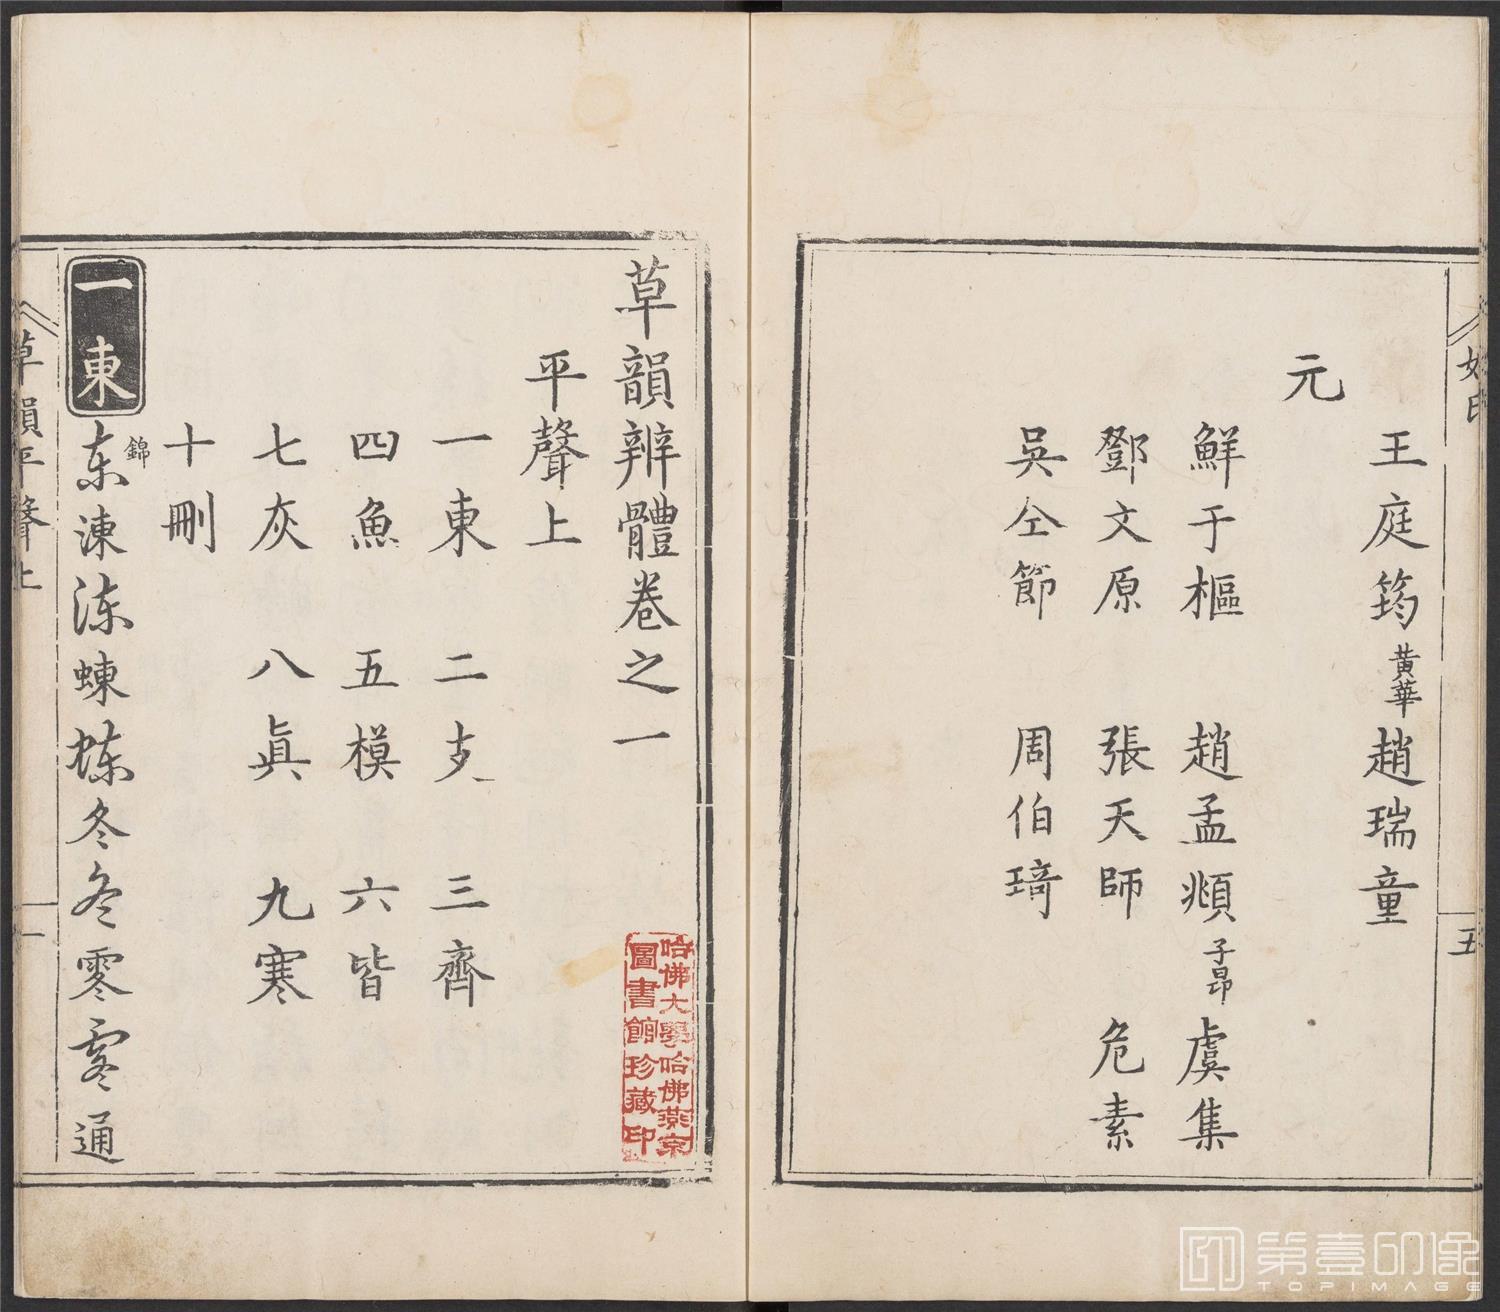 王庭筠 黄華 趙瑞童
元
鮮于樞 趙孟頫 子昂 虞集
鄧文原 張天師 危素
吳仝節 周伯琦
五
草韻辨體卷之一
平聲上
一東 二支 三齊
四魚 五模 六皆
七灰 八眞 九寒
十刪
一東 东 錦 涷 涷 蝀 蝀 冬 冬 零 零 通
草韻平聲上
一
哈佛大學哈佛燕京
圖書館珍藏印
第壹印像
TOPIMAGE